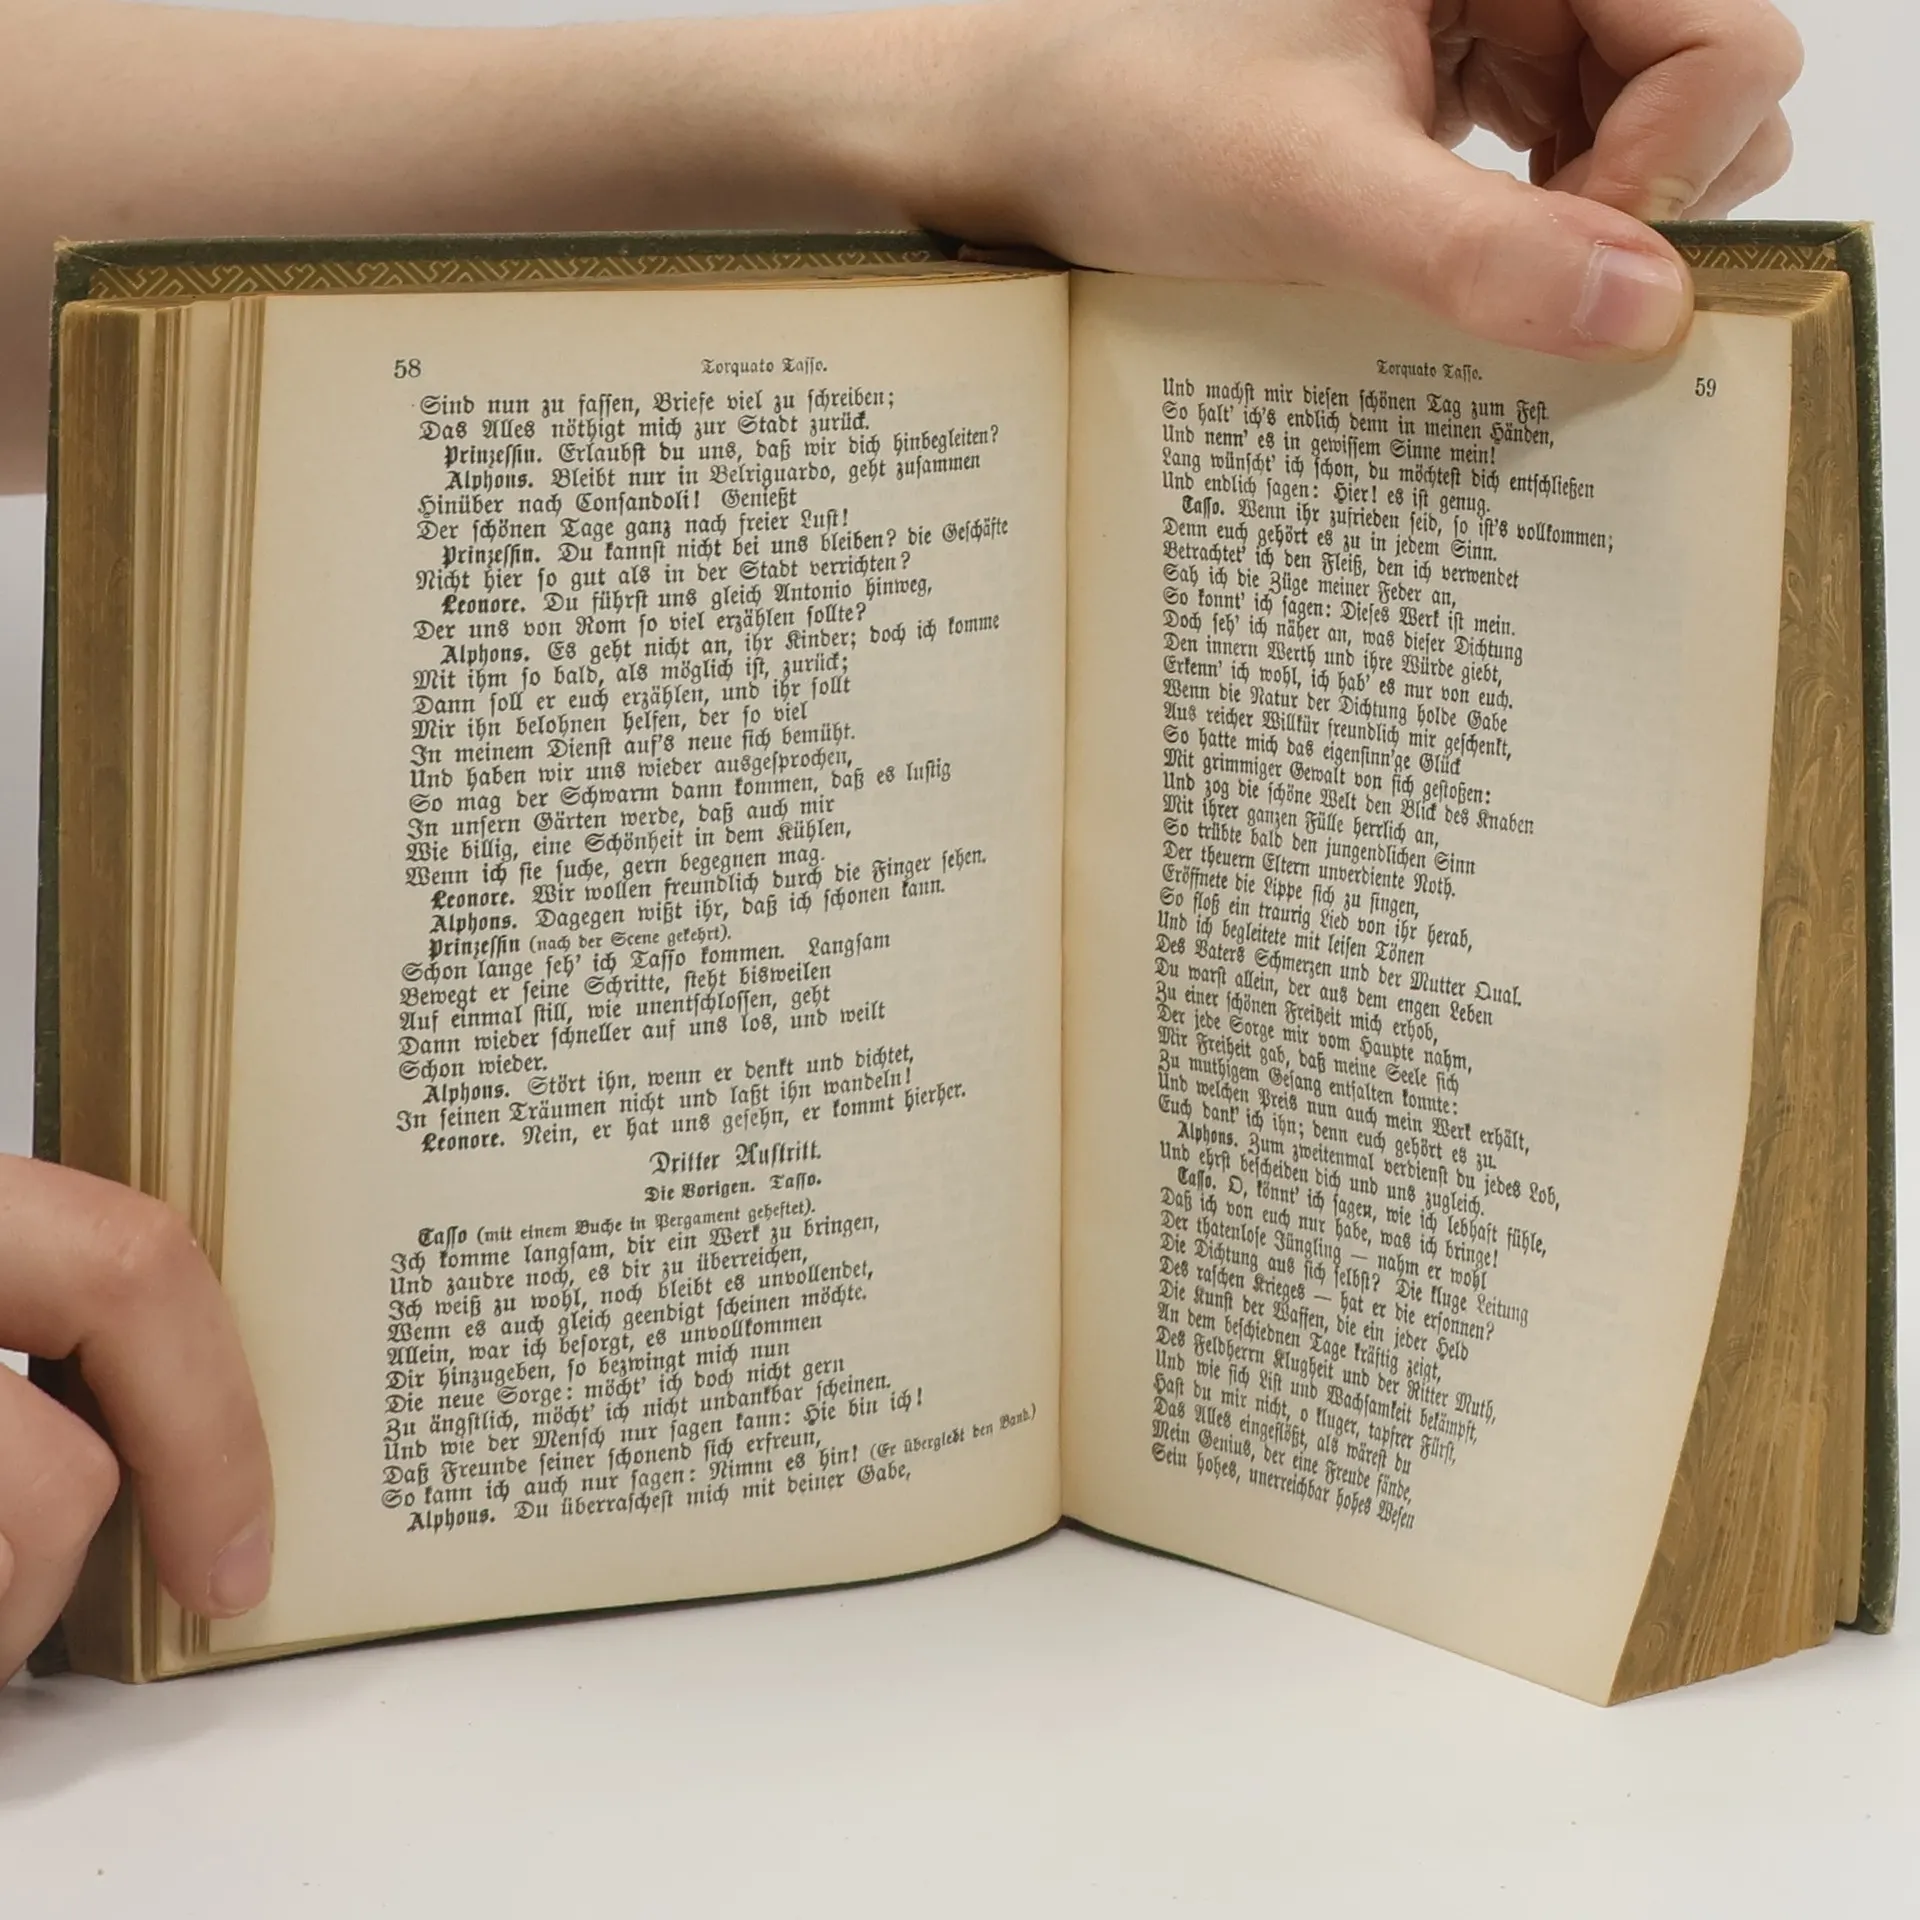 58
Torquato Tasso.
Sind nun zu fassen, Briefe viel zu schreiben;
Das Alles nöthigt mich zur Stadt zurück.
Prinzessin. Erlaubst du uns, daß wir dich hinbegleiten?
Alphons. Bleibt nur in Belriguardo, geht zusammen
Hinüber nach Consandoli! Genießt
Der schönen Tage ganz nach freier Lust!
Prinzessin. Du kannst nicht bei uns bleiben? die Geschäfte
Nicht hier so gut als in der Stadt verrichten?
Leonore. Du führst uns gleich Antonio hinweg,
Der uns von Rom so viel erzählen sollte?
Alphons. Es geht nicht an, ihr Kinder; doch ich komme
Mit ihm so bald, als möglich ist, zurück;
Dann soll er euch erzählen, und ihr sollt
Mir ihn belohnen helfen, der so viel
In meinem Dienst auf's neue sich bemüht.
Und haben wir uns wieder ausgesprochen,
So mag der Schwarm dann kommen, daß es lustig
In unsern Gärten werde, daß auch mir
Wie billig, eine Schönheit in dem Kühlen,
Wenn ich sie suche, gern begegnen mag.
Leonore. Wir wollen freundlich durch die Finger sehen.
Alphons. Dagegen wißt ihr, daß ich schonen kann.
Prinzessin (nach der Scene gekehrt).
Schon lange seh' ich Tasso kommen. Langsam
Bewegt er seine Schritte, steht bisweilen
Auf einmal still, wie unentschlossen, geht
Dann wieder schneller auf uns los, und weilt
Schon wieder.
Alphons. Stört ihn, wenn er denkt und dichtet,
In seinen Träumen nicht und laßt ihn wandeln!
Leonore. Nein, er hat uns gesehn, er kommt hierher.
Dritter Auftritt.
Die Vorigen. Tasso.
Tasso (mit einem Buche in Pergament geheftet).
Ich komme langsam, dir ein Werk zu bringen,
Und zaudre noch, es dir zu überreichen,
Ich weiß zu wohl, noch bleibt es unvollendet,
Wenn es auch gleich geendigt scheinen möchte.
Allein, war ich besorgt, es unvollkommen
Dir hinzugeben, so bezwingt mich nun
Die neue Sorge: möcht' ich doch nicht gern
Zu ängstlich, möcht' ich nicht undankbar scheinen.
Und wie der Mensch nur sagen kann: Hie bin ich!
Daß Freunde seiner schonend sich erfreun,
So kann ich auch nur sagen: Nimm es hin! (Er übergiebt den Band.)
Alphons. Du überraschest mich mit deiner Gabe,
Torquato Tasso.
59
Und machst mir diesen schönen Tag zum Fest
So halt' ich's endlich denn in meinen Händen,
Und nenn' es in gewissem Sinne mein!
Lang wünscht' ich schon, du möchtest dich entschließen
Und endlich sagen: Hier! es ist genug.
Tasso. Wenn ihr zufrieden seid, so ist's vollkommen;
Denn euch gehört es zu in jedem Sinn.
Betrachtet' ich den Fleiß, den ich verwendet
Sah ich die Züge meiner Feder an,
So konnt' ich sagen: Dieses Werk ist mein.
Doch seh' ich näher an, was dieser Dichtung
Den innern Werth und ihre Würde giebt,
Erkenn' ich wohl, ich hab' es nur von euch.
Wenn die Natur der Dichtung holde Gabe
Aus reicher Willkür freundlich mir geschenkt,
So hatte mich das eigensinn'ge Glück
Mit grimmiger Gewalt von sich gestoßen:
Und zog die schöne Welt den Blick des Knaben
Mit ihrer ganzen Fülle herrlich an,
So trübte bald den jungendlichen Sinn
Der theuern Eltern unverdiente Noth.
Eröffnete die Lippe sich zu singen,
So floß ein traurig Lied von ihr herab,
Und ich begleitete mit leisen Tönen
Des Vaters Schmerzen und der Mutter Qual.
Du warst allein, der aus dem engen Leben
Zu einer schönen Freiheit mich erhob,
Der jede Sorge mir vom Haupte nahm,
Mir Freiheit gab, daß meine Seele sich
Zu muthigem Gesang entfalten konnte:
Und welchen Preis nun auch mein Werk erhält,
Euch dank' ich ihn; denn euch gehört es zu.
Alphons. Zum zweitenmal verdienst du jedes Lob,
Und ehrst bescheiden dich und uns zugleich.
Tasso. O, könnt' ich sagen, wie ich lebhaft fühle,
Daß ich von euch nur habe, was ich bringe!
Der thatenlose Jüngling — nahm er wohl
Die Dichtung aus sich selbst? Die kluge Leitung
Des raschen Krieges — hat er die ersonnen?
Die Kunst der Waffen, die ein jeder Held
An dem beschiednen Tage kräftig zeigt,
Des Feldherrn Klugheit und der Ritter Muth,
Und wie sich List und Wachsamkeit bekämpft,
Hast du mir nicht, o kluger, tapfrer Fürst,
Das Alles eingeflößt, als wärest du
Mein Genius, der eine Freude fände,
Sein hohes, unerreichbar hohes Wesen